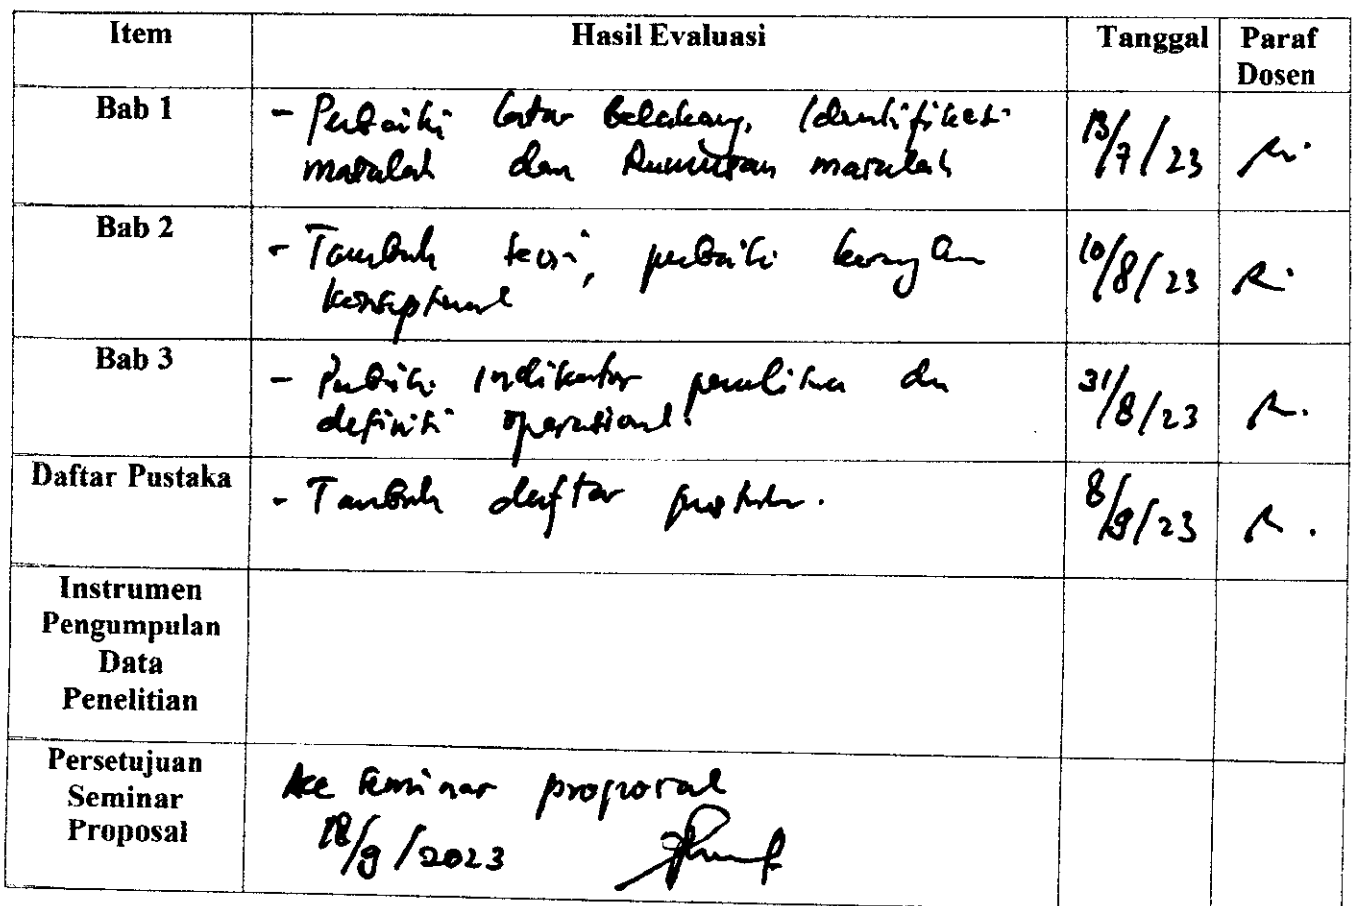 Item Hasil Evaluasi Tanggal Paraf
Dosen
Bab 1 - Perbaiki latar belakang, Identifikasi
masalah dan Rumusan masalah 13/7/23
Bab 2 - Tambah teori, perbaiki kerangka
konseptual 10/8/23
Bab 3 - Perbaiki Indikator penelitian dan
definisi operasional. 31/8/23
Daftar Pustaka - Tambah daftar pustaka. 8/9/23
Instrumen
Pengumpulan
Data
Penelitian
Persetujuan
Seminar
Proposal
Acc Seminar proposal
/9/2023